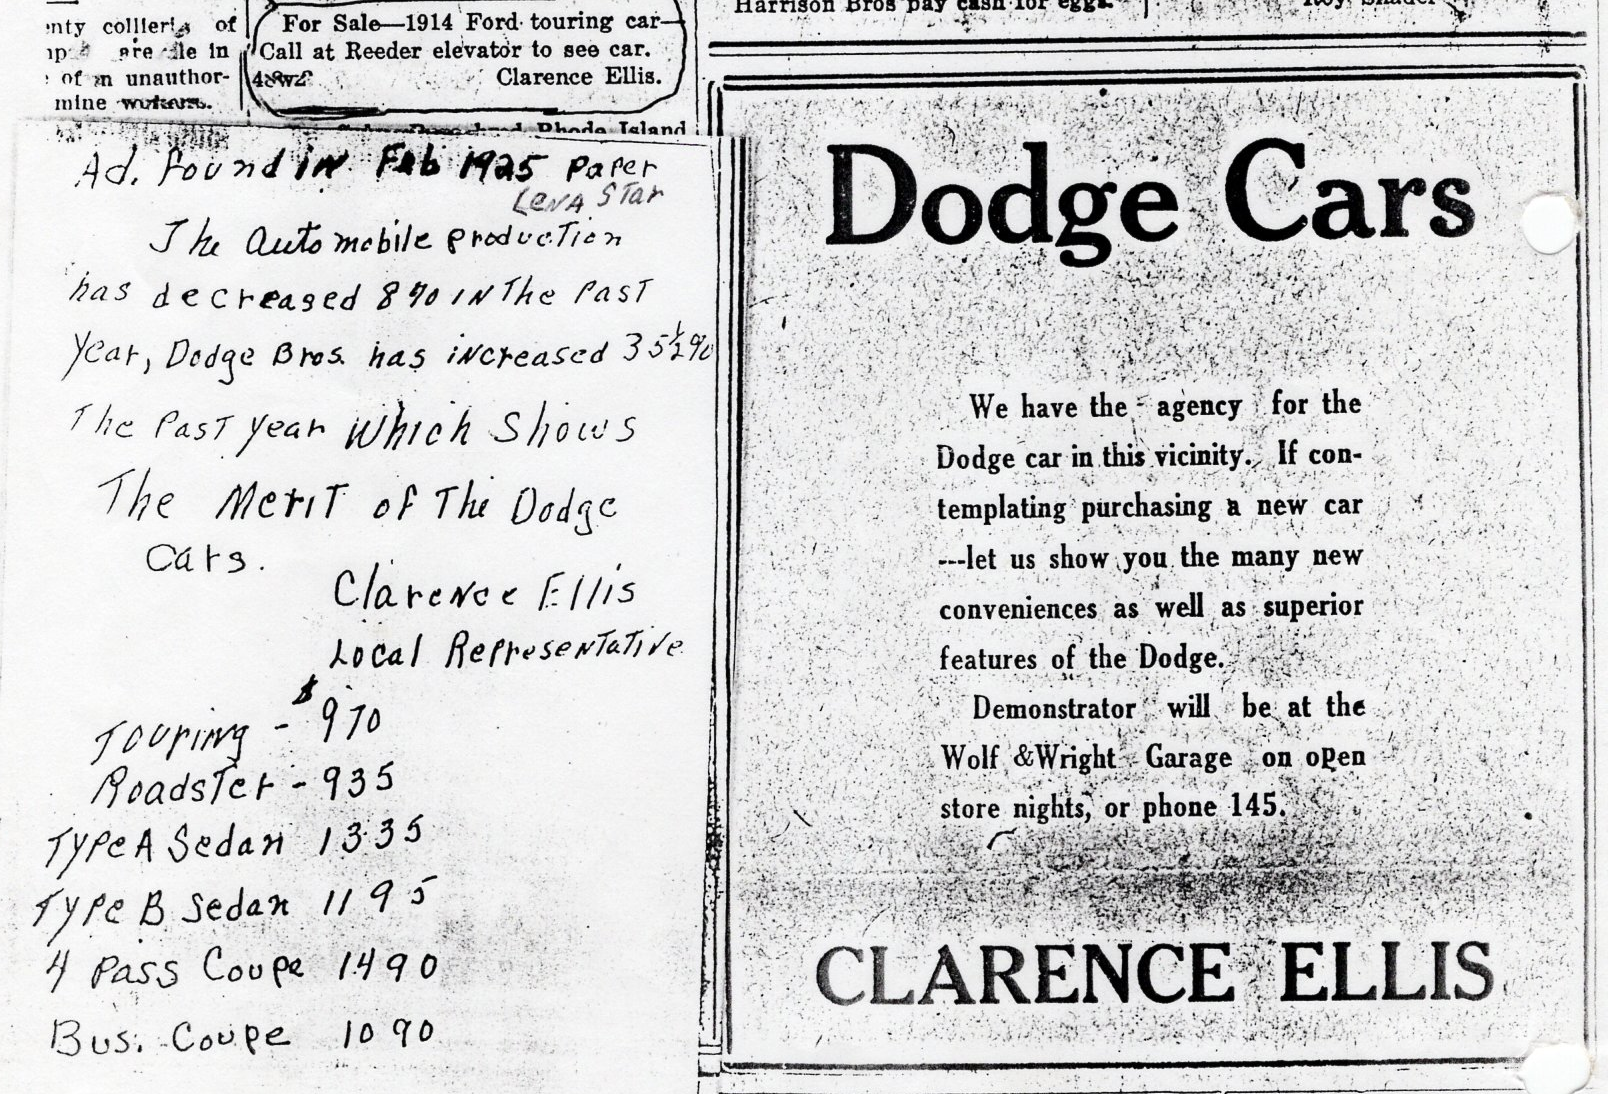 nty collieries of
are in
of unauthor-
mine
For Sale—1914 Ford touring car—
Call at Reeder elevator to see car.
Clarence Ellis.
Rhode Island
Harrison Bros pay cash for eggs.
Ad. found in Feb 1925 Paper
Lena Star
The Automobile production
has decreased 8% in the past
year, Dodge Bros. has increased 35½%
The Past year which shows
The Merit of The Dodge
Cars.
Clarence Ellis
Local Representative
Touring - $970
Roadster - 935
Type A Sedan 1335
Type B Sedan 1195
4 Pass Coupe 1490
Bus. Coupe 1090
Dodge Cars
We have the agency for the
Dodge car in this vicinity. If con-
templating purchasing a new car
---let us show you the many new
conveniences as well as superior
features of the Dodge.
Demonstrator will be at the
Wolf &Wright Garage on open
store nights, or phone 145.
CLARENCE ELLIS